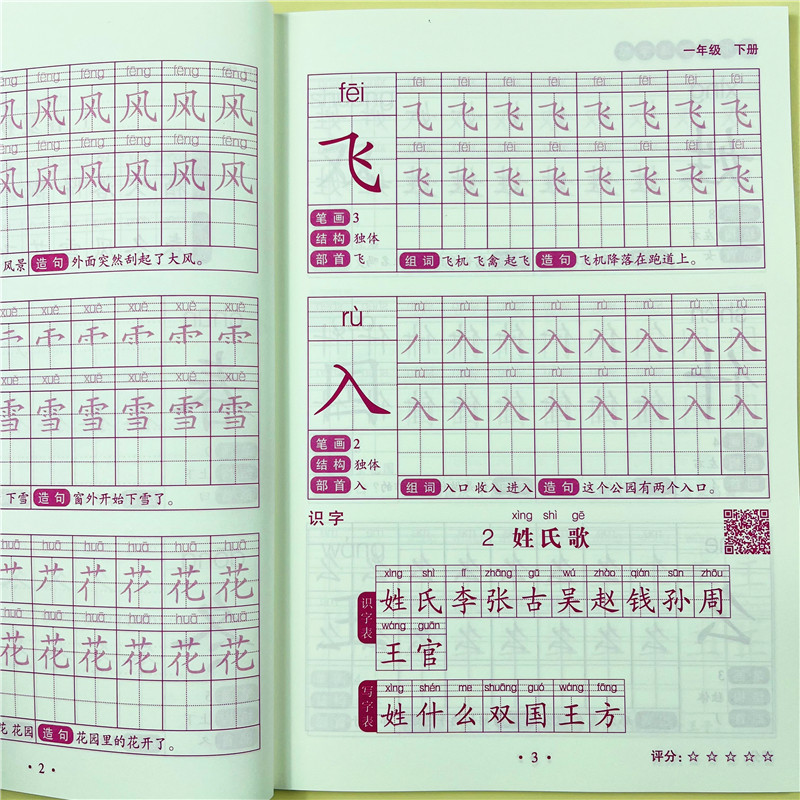 fēng fēng fēng fēng fēng fēng
风 风 风 风 风
fēng fēng fēng fēng fēng fēng
风 风 风 风 风 风
风景 造句 外面突然刮起了大风。
xuě xuě xuě xuě xuě xuě
xuě xuě xuě xuě xuě xuě
雪 雪 雪 雪 雪 雪
下雪 造句 窗外开始下雪了。
huā huā huā huā huā huā
花 花
huā huā huā huā huā huā
花 花 花 花 花 花
花 花园 造句 花园里的花开了。
·2·
一年级 下册
fēi
飞
fēi fēi fēi fēi fēi fēi fēi fēi
飞 飞 飞 飞 飞 飞 飞
fēi fēi fēi fēi fēi fēi fēi fēi
飞 飞 飞 飞 飞 飞 飞 飞
笔画 3
结构 独体
部首 飞
组词 飞机 飞禽 起飞 造句 飞机降落在跑道上。
rù
入
rù rù rù rù rù rù rù rù
入 入 入 入 入 入 入
rù rù rù rù rù rù rù rù
入 入 入 入 入 入 入 入
笔画 2
结构 独体
部首 入
组词 入口 收入 进入 造句 这个公园有两个入口。
识字
xìng shì gē
2 姓氏歌
识字表
xìng shì lǐ zhāng gǔ wú zhào qián sūn zhōu
姓 氏 李 张 古 吴 赵 钱 孙 周
wáng guān
王 官
写字表
xìng shén me shuāng guó wáng fāng
姓 什 么 双 国 王 方
·3·
评分：☆ ☆ ☆ ☆ ☆